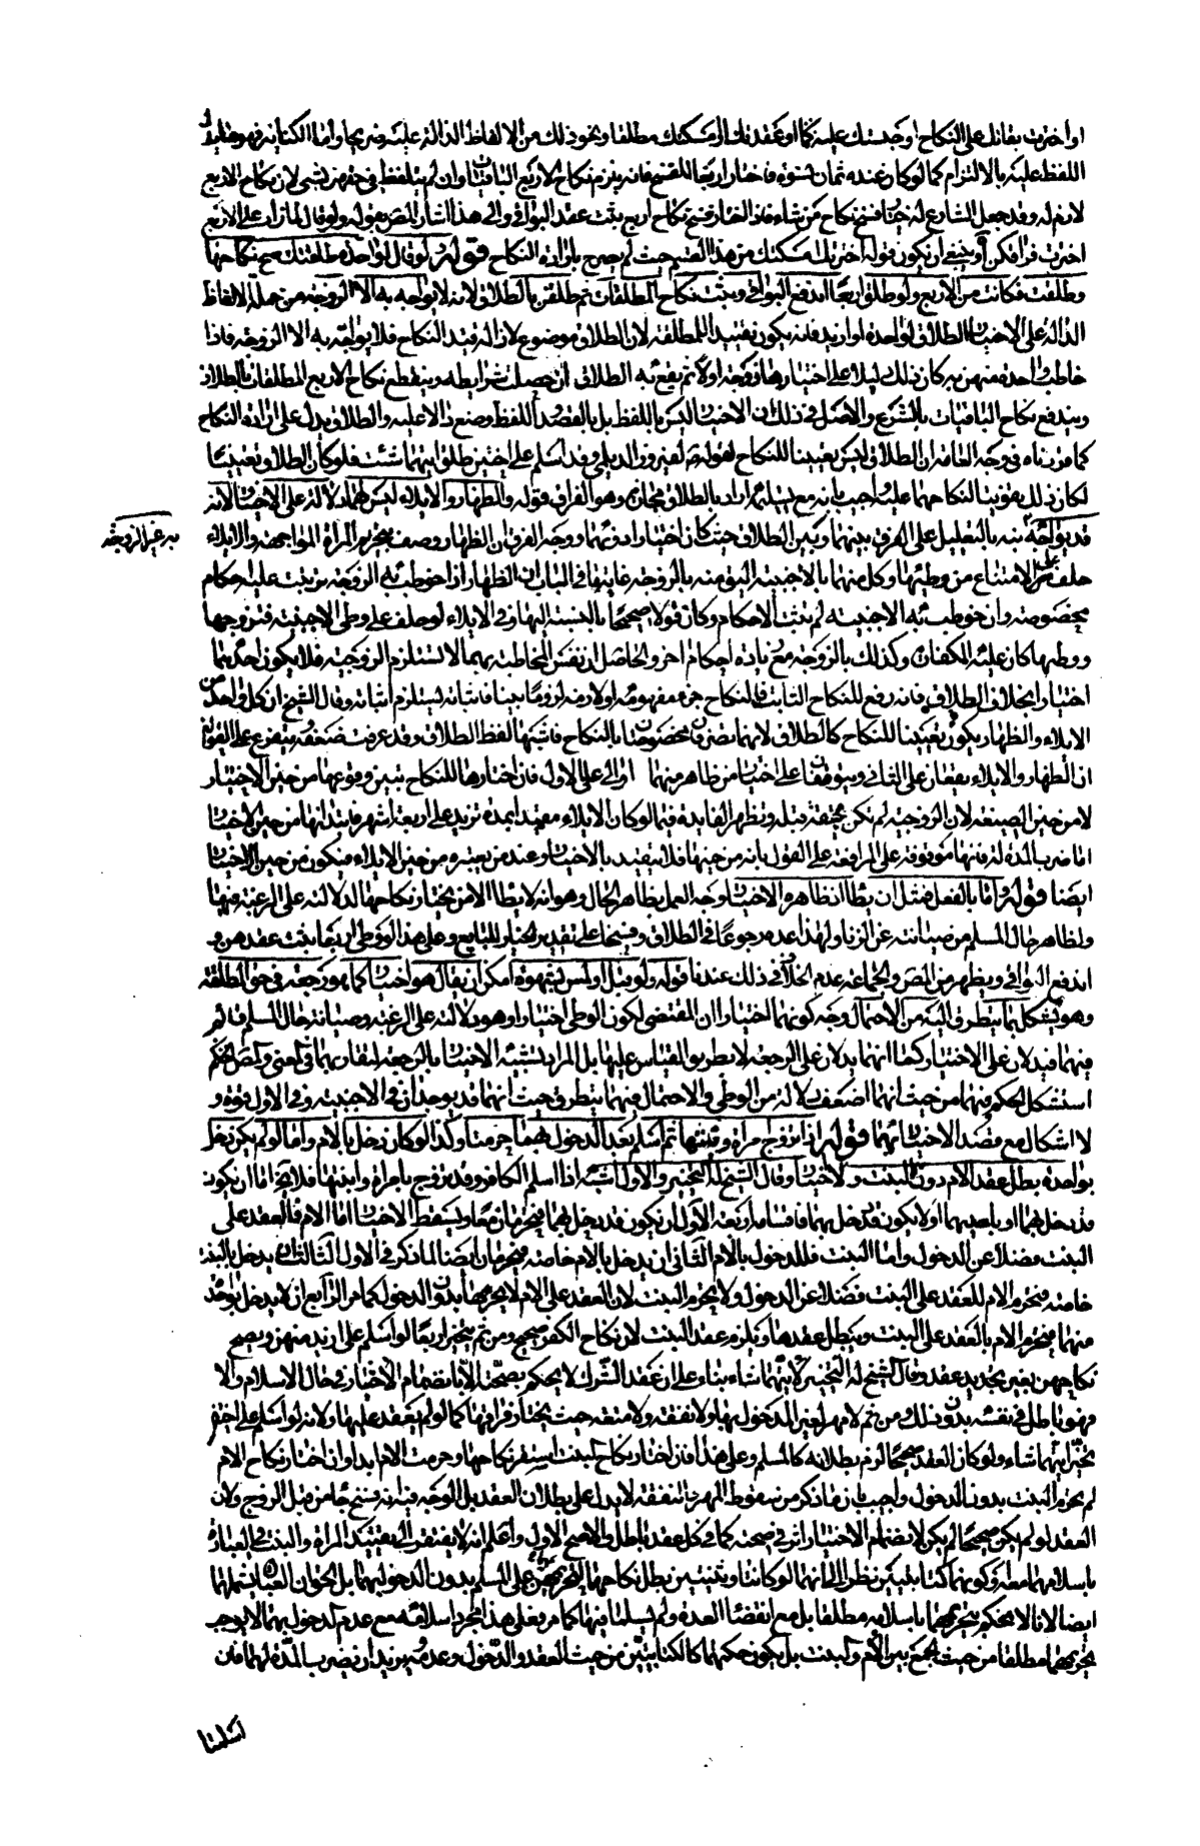 او اخترت بقائك على النكاح او حبستك عليه نكاحا او عقدتك او امسكتك مطلقا ونحو ذلك من الالفاظ الدالة عليه صريحا واما الكناية فهو ما يدل
اللفظ عليه بالالتزام كما لو كان عنده ثمان نسوة فاختار اربعا للفسخ فانه يلزم نكاح الاربع الباقيات وان لم يتلفظ في حقهن بشيء لان نكاح الاربع
لازم له وقد جعل الشارع له خيار فسخ نكاح من شاء فاذا اختار فسخ نكاح اربع يثبت عقد البواقي والى هذا اشار المصنف بقوله ولو قال لما زاد على الاربع
اخترت فراقكن وينبغي ان يكون قوله اخترتك وامسكتك من هذا القسم حيث لم يصرح بارادة النكاح قوله ولو قال لواحدة طلقتك صح نكاحها
وطلقت وكانت من الاربع ولو طلق اربعا اندفع البواقي وثبت نكاح المطلقات ثم طلقن بالطلاق لانه لا يواجه به الا الزوجة من جملة الالفاظ
الدالة على الاختيار الطلاق لواحدة او ازيد فانه يكون تعيينا للمطلقة لان الطلاق موضوع لازالة قيد النكاح فلا يواجه به الا الزوجة فاذا
خاطب واحدة منهن به كان ذلك دليلا على اختيارها زوجة اولا ثم يقع به الطلاق ان حصلت شرايطه وينقطع نكاح الاربع المطلقات بالطلاق
ويندفع نكاح الباقيات بالشرع والاصل في ذلك ان الاختيار ليس باللفظ بل بالقصد واللفظ وضع دالا عليه والطلاق يدل على ارادة النكاح
كما قررناه في وجه العامة ان الطلاق ليس تعيينا للنكاح لقوله لفيروز الديلمي وقد اسلم على اختين طلق ايتهما شئت فلو كان الطلاق تعيينا
لكان ذلك تفويتا لنكاحهما عليه واجيب بانه مع تسليمه اراد بالطلاق مجازه وهو الفراق قوله والظهار والايلاء ليس لهما دلالة على الاختيار لانه
قد يواجه به غير الزوجة
نبه بالتعليل على الفرق بينهما وبين الطلاق حيث كان اختيارا دونهما ووجه الفرق ان الظهار وصف بتحريم المراة المواجهة والايلاء
حلف على الامتناع من وطئها وكل منهما بالاجنبية اليق منه بالزوجة غايتها في الباب ان الظهار اذا خوطب به الزوجة ترتبت عليه احكام
مخصوصة وان خوطب به الاجنبية لم تثبت الاحكام وكان قولا صحيحا بالنسبة اليها وفي الايلاء لو حلف على وطى الاجنبية فتزوجها
ووطيها كان عليه الكفارة وكذلك بالزوجة مع زيادة احكام اخر والحاصل ان نفس المخاطبة بهما لا تستلزم الزوجية فلا يكون احدهما
اختيارا بخلاف الطلاق فانه رفع للنكاح الثابت فالنكاح جزء مفهومه او لازمه لزوما بينا فاثباته يستلزم اثباته وقال الشيخ ان كل واحد من
الايلاء والظهار يكون تعيينا للنكاح كالطلاق لانهما تصرفان مخصوصان بالنكاح فاشبها لفظ الطلاق وقد عرفت ضعفه ويتفرع على القولين
ان الظهار والايلاء يقعان على الثاني ويتوقفان على اختيار من ظاهر منها او الى على الاول فان اختارها للنكاح تبين وقوعهما من حين الاختيار
لا من حين الصيغة لان الزوجية لم تكن متحققة قبله وتظهر الفايدة فيما لو كان الايلاء مقيدا بمدة تزيد على اربعة اشهر فابتداؤها من حين الاختيار
اما ضرب المدة له فانها موقوفة على المرافعة على القول بانه من حينها فلا يتقيد بالاختيار وعند من يعتبره من حين الايلاء فيكون من حين الاختيار
ايضا قوله واما بالفعل فمثل ان يطا اذ ظاهره الاختيار وجه العمل بظاهر الحال وهو انه لا يطا الا من يختار نكاحها لدلالته على الرغبة فيها
ولظاهر حال المسلم من صيانته عن الزنا ولهذا عد رجوعا في الطلاق وفسخا على تقدير الخيار للبايع وعلى هذا لو وطى اربعا يثبت عقدهن و
اندفع البواقي ويظهر من المصنف والجماعة عدم الخلاف في ذلك عندنا قوله ولو قبل او لمس بشهوة امكن ان يقال هو اختيار كما هو رجعة في حق المطلقة
وهو يشكل بما يتطرق اليه من الاحتمال وجه كونهما اختيارا ان المقتضى لكون الوطى اختيارا وهو دلالته على الرغبة وصيانة حال المسلم قائم
فيهما فيدلان على الاختيار كما انهما يدلان على الرجعة لا بطريق القياس عليها بل المراد تشبيه الاختيار بالرجعة لتقاربهما في المعنى والمصنف
استشكل الحكم فيهما من حيث انهما اضعف دلالة من الوطى والاحتمال فيهما يتطرق حيث انهما قد يوجدان في الاجنبية وفي الاول قوة و
لا اشكال مع قصد الاختيار بهما قوله اذا تزوج امراة وبنتها ثم اسلم بعد الدخول بهما حرمتا وكذا لو كان دخل بالام واما لو لم يكن دخل
بواحدة بطل عقد الام دون البنت ولا اختيار وقال الشيخ له التخيير والاول اشبه اذا اسلم الكافر وقد تزوج بامراة وابنتها فلا يخ اما ان يكون
قد دخل بهما او باحديهما او لا يكون قد دخل بهما فاقسامه اربعة الاول ان يكون قد دخل بهما فيحرمان معا ويسقط الاختيار اما الام فالعقد على
البنت فضلا عن الدخول واما البنت فللدخول بالام الثاني ان يدخل بالام خاصة فيحرمان ايضا لما ذكر في الاول الثالث ان يدخل بالبنت
خاصة فيحرم الام للعقد على البنت فضلا عن الدخول ولا يحرم البنت لان العقد على الام لا يحرمها بدون الدخول كما مر الرابع ان لا يدخل بواحدة
منهما فيحرم الام بالعقد على البنت ويبطل عقدها ويلزم عقد البنت لان نكاح الكفر صحيح ومن ثم يتخير اربعا لو اسلم على ازيد منهن ويصح
نكاحهن بغير تجديد عقد وقال الشيخ له التخيير لايتهما شاء بناء على ان عقد الشرك لا يحكم بصحته الا بانضمام الاختيار في حال الاسلام والا
فهو باطل في نفسه بدون ذلك ومن ثم لا مهر لغير المدخول بها ولا نفقة ولا متعة حيث يختار فراقها كما لو لم يعقد عليها ولانه لو اسلم على اختين
تخير ايتهما شاء ولو كان العقد صحيحا لزم بطلانه كالمسلم وعلى هذا فان اختار نكاح البنت استقر نكاحها وحرمت الام ابدا وان اختار نكاح الام
لم يحرم البنت بدون الدخول واجيب بان ما ذكر من سقوط المهر والنفقة لا يدل على بطلان العقد بل الوجه فيه انه فسخ جاء من قبل الزوج ولان
العقد لو لم يكن صحيحا لم يكن لانضمام الاختيار اثر في صحته كما في كل عقد باطل والاصح الاول واعلم انه لا يفتقر الى تقييد المراة والبنت في العبارة
باسلامهما معه او كونهما كتابيتين نظرا الى انهما لو كانتا وثنيتين بطل نكاحهما لتحريمهن على المسلم بدون الدخول بهما بل الحق ان العبارة يشملهما
ايضا لانا لا نحكم بتحريمهما باسلامه مطلقا بل مع انقضاء العدة ولم يسلما فيها كما مر فعلى هذا مجرد اسلامه مع عدم الدخول بهما لا يوجب
تحريمهما مطلقا من حيث الجمع بين الام والبنت بل يكون حكمهما كالكتابيتين من حيث العقد والدخول وعدمه ويزيد ان يضرب المدة لهما فان
اسلمتا